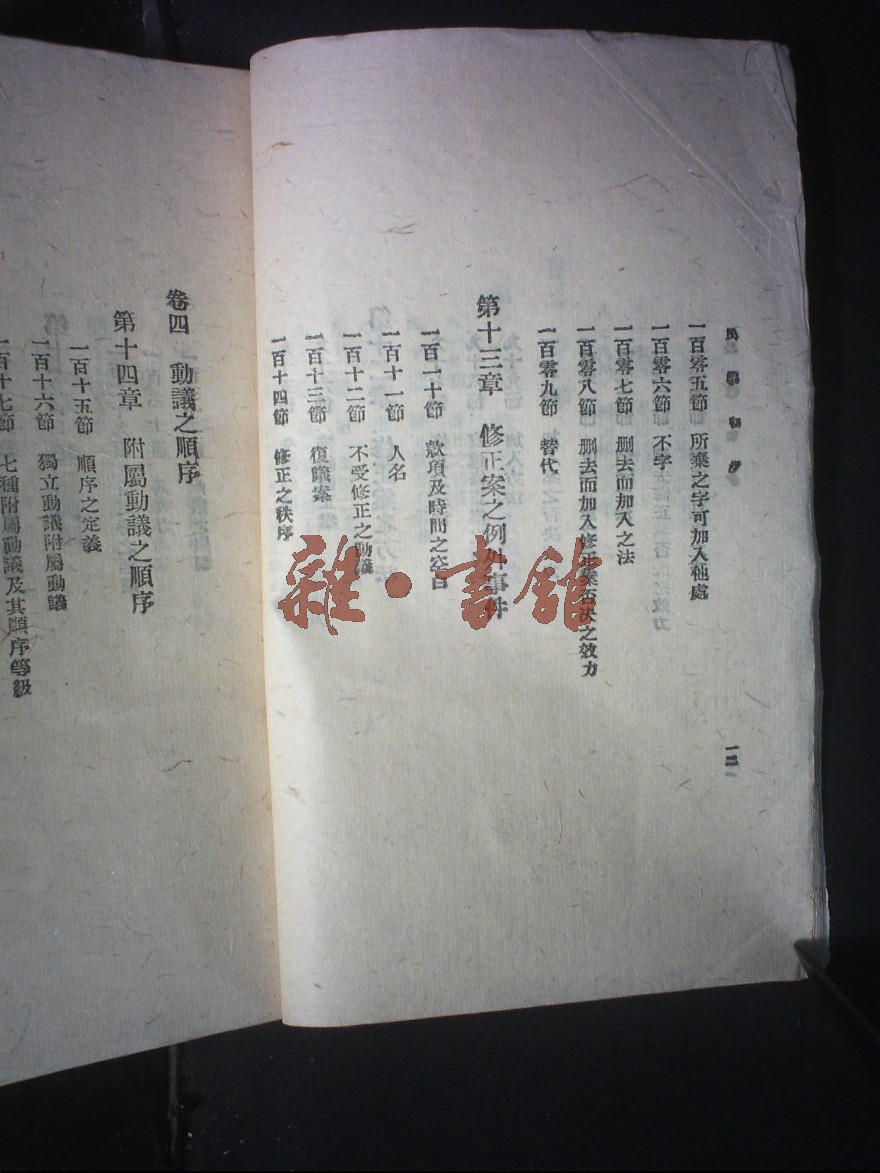 民權初步
一百零五節 所棄之字可加入他處
一百零六節 不字
一百零七節 删去而加入之法
一百零八節 删去而加入修正案否决之效力
一百零九節 替代
第十三章 修正案之例外事件
一百一十節 款項及時間之空白
一百十一節 人名
一百十二節 不受修正之動議
一百十三節 復議案
一百十四節 修正之秩序
卷四 動議之順序
第十四章 附屬動議之順序
一百十五節 順序之定義
一百十六節 獨立動議附屬動議
一百十七節 七種附屬動議及其順序等級
雜·書館